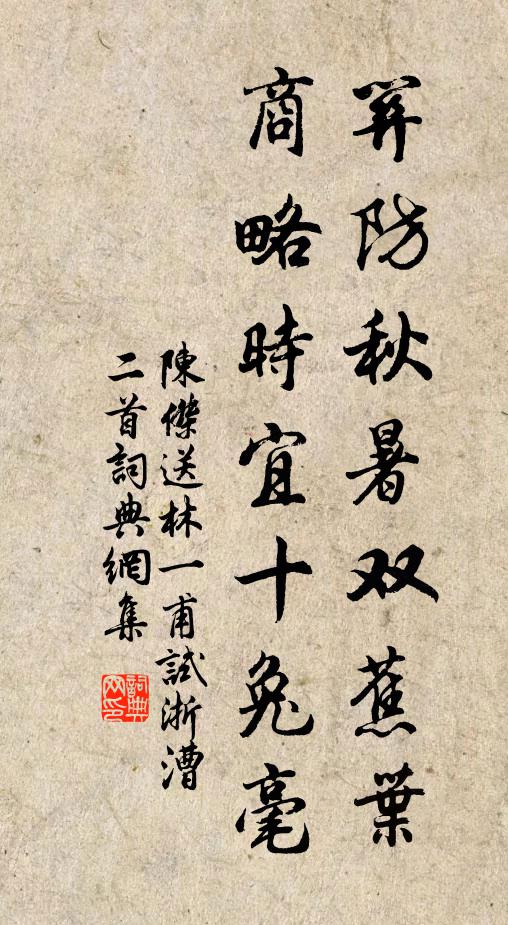 防秋暑双蕉葉
商略時宜十兔毫
陳傑送林一甫試浙漕
二首詞典網集
詞典
网印